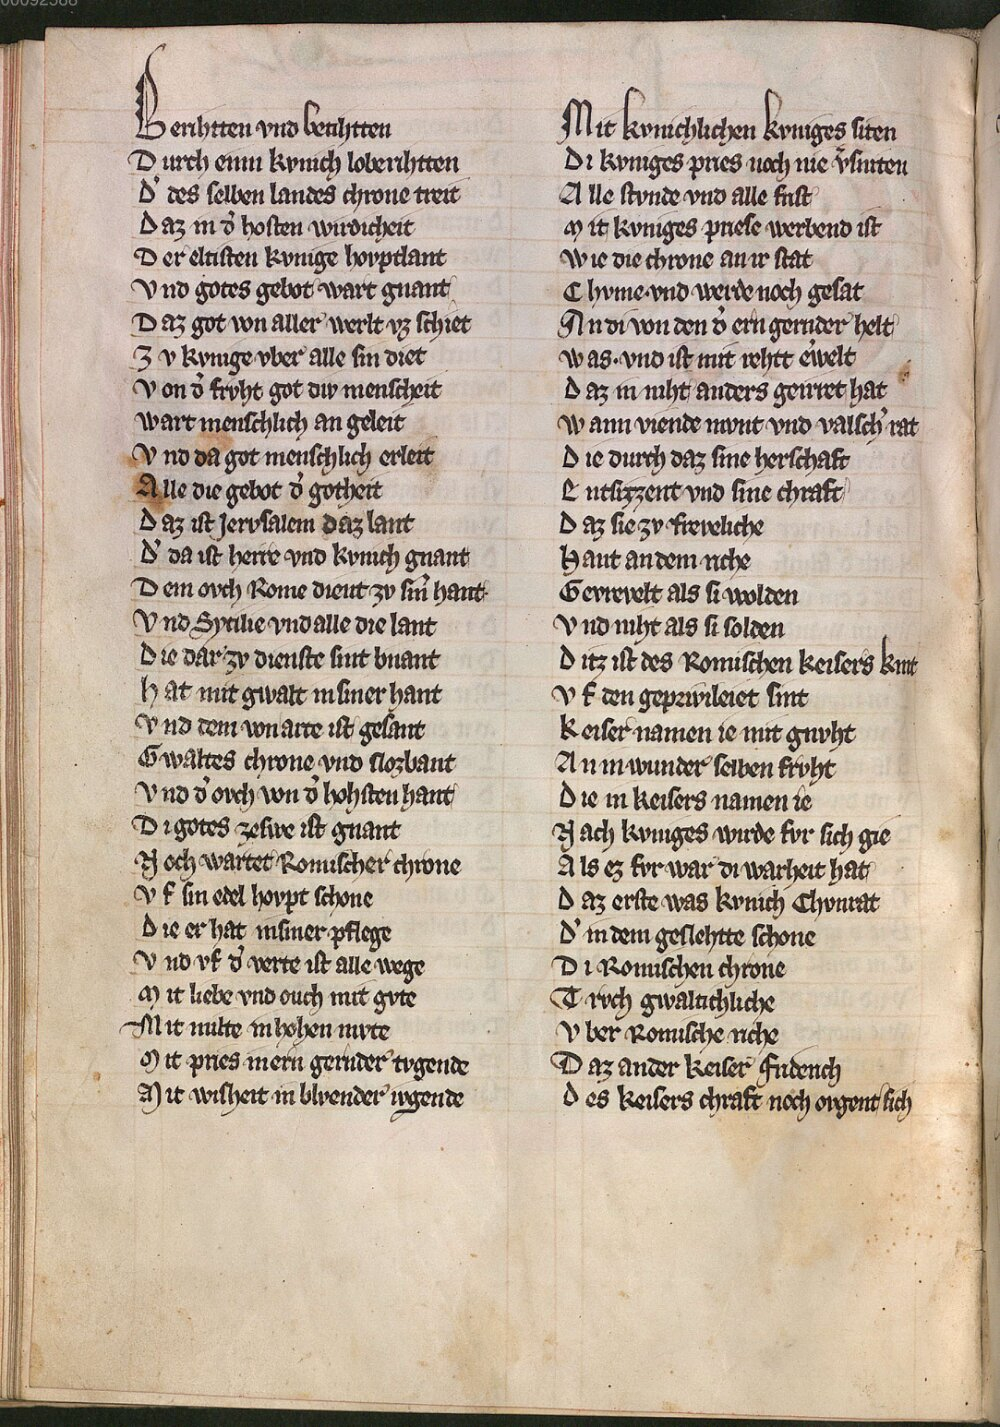 Berihtten vnd betihtten
Durch einn kvnich loberihtten
D' des selben landes chrone treit
Daz in d' hosten wirdicheit
Der eltisten kvnige hovptlant
Vnd gotes gebot wart gnant
Daz got von aller werlt vz schiet
Zv kvnige vber alle sin diet
Von d' frvht got div menscheit
wart menschlich an geleit
Vnd da got menschlich erleit
Alle die gebot d' gotheit
Daz ist Jervsalem daz lant
D' da ist herre vnd kvnich gnant
Dem ovch Rome dient zv sin' hant
Vnd Sycilie vnd alle die lant
Die dar zv dienste sint bnant
Hat mit gwalt in siner hant
Vnd dem von arte ist gesant
Gwaltes chrone vnd slozbant
Vnd d' ovch von d' hohsten hant
Di gotes zeswe ist gnant
Noch wartet Romischer chrone
Vf sin edel hovpt schone
Die er hat in siner pflege
Vnd vf d' verte ist alle wege
Mit liebe vnd ouch mit gvte
Mit milte in hohen mvte
Mit pries in ern gernder tvgende
Mit wisheit in blvender ivgende
Mit kvnichlichen kvniges siten
Di kvniges pries noch nie v'sniten
Alle stvnde vnd alle frist
Mit kvniges priese werbend ist
Wie die chrone an ir stat
Chvme vnd werde noch gesat
An di von den d' ern gernder helt
Was vnd ist mit rehtt erwelt
Daz in niht anders geirret hat
Wann viende mvnt vnd valsch' rat
Die durch daz sine herschaft
Entsizzent vnd sine chraft
Daz sie zv freveliche
Hant an dem riche
Gevrevelt als si wolden
Vnd niht als si solden
Ditz ist des Romischen keisers kint
Vf den geprivileiet sint
Keiser namen ie mit gnvht
An in wunder selben frvht
Die in keisers namen ie
Nach kvniges wirde fvr sich gie
Als ez fvr war di warheit hat
Daz erste was kvnich Chvnrat
D' in dem geslehtte schone
Di Romischen chrone
Trvch gwaltichliche
Vber Romische riche
Daz ander keiser Fridench
Des keisers chraft noch ovgent sich